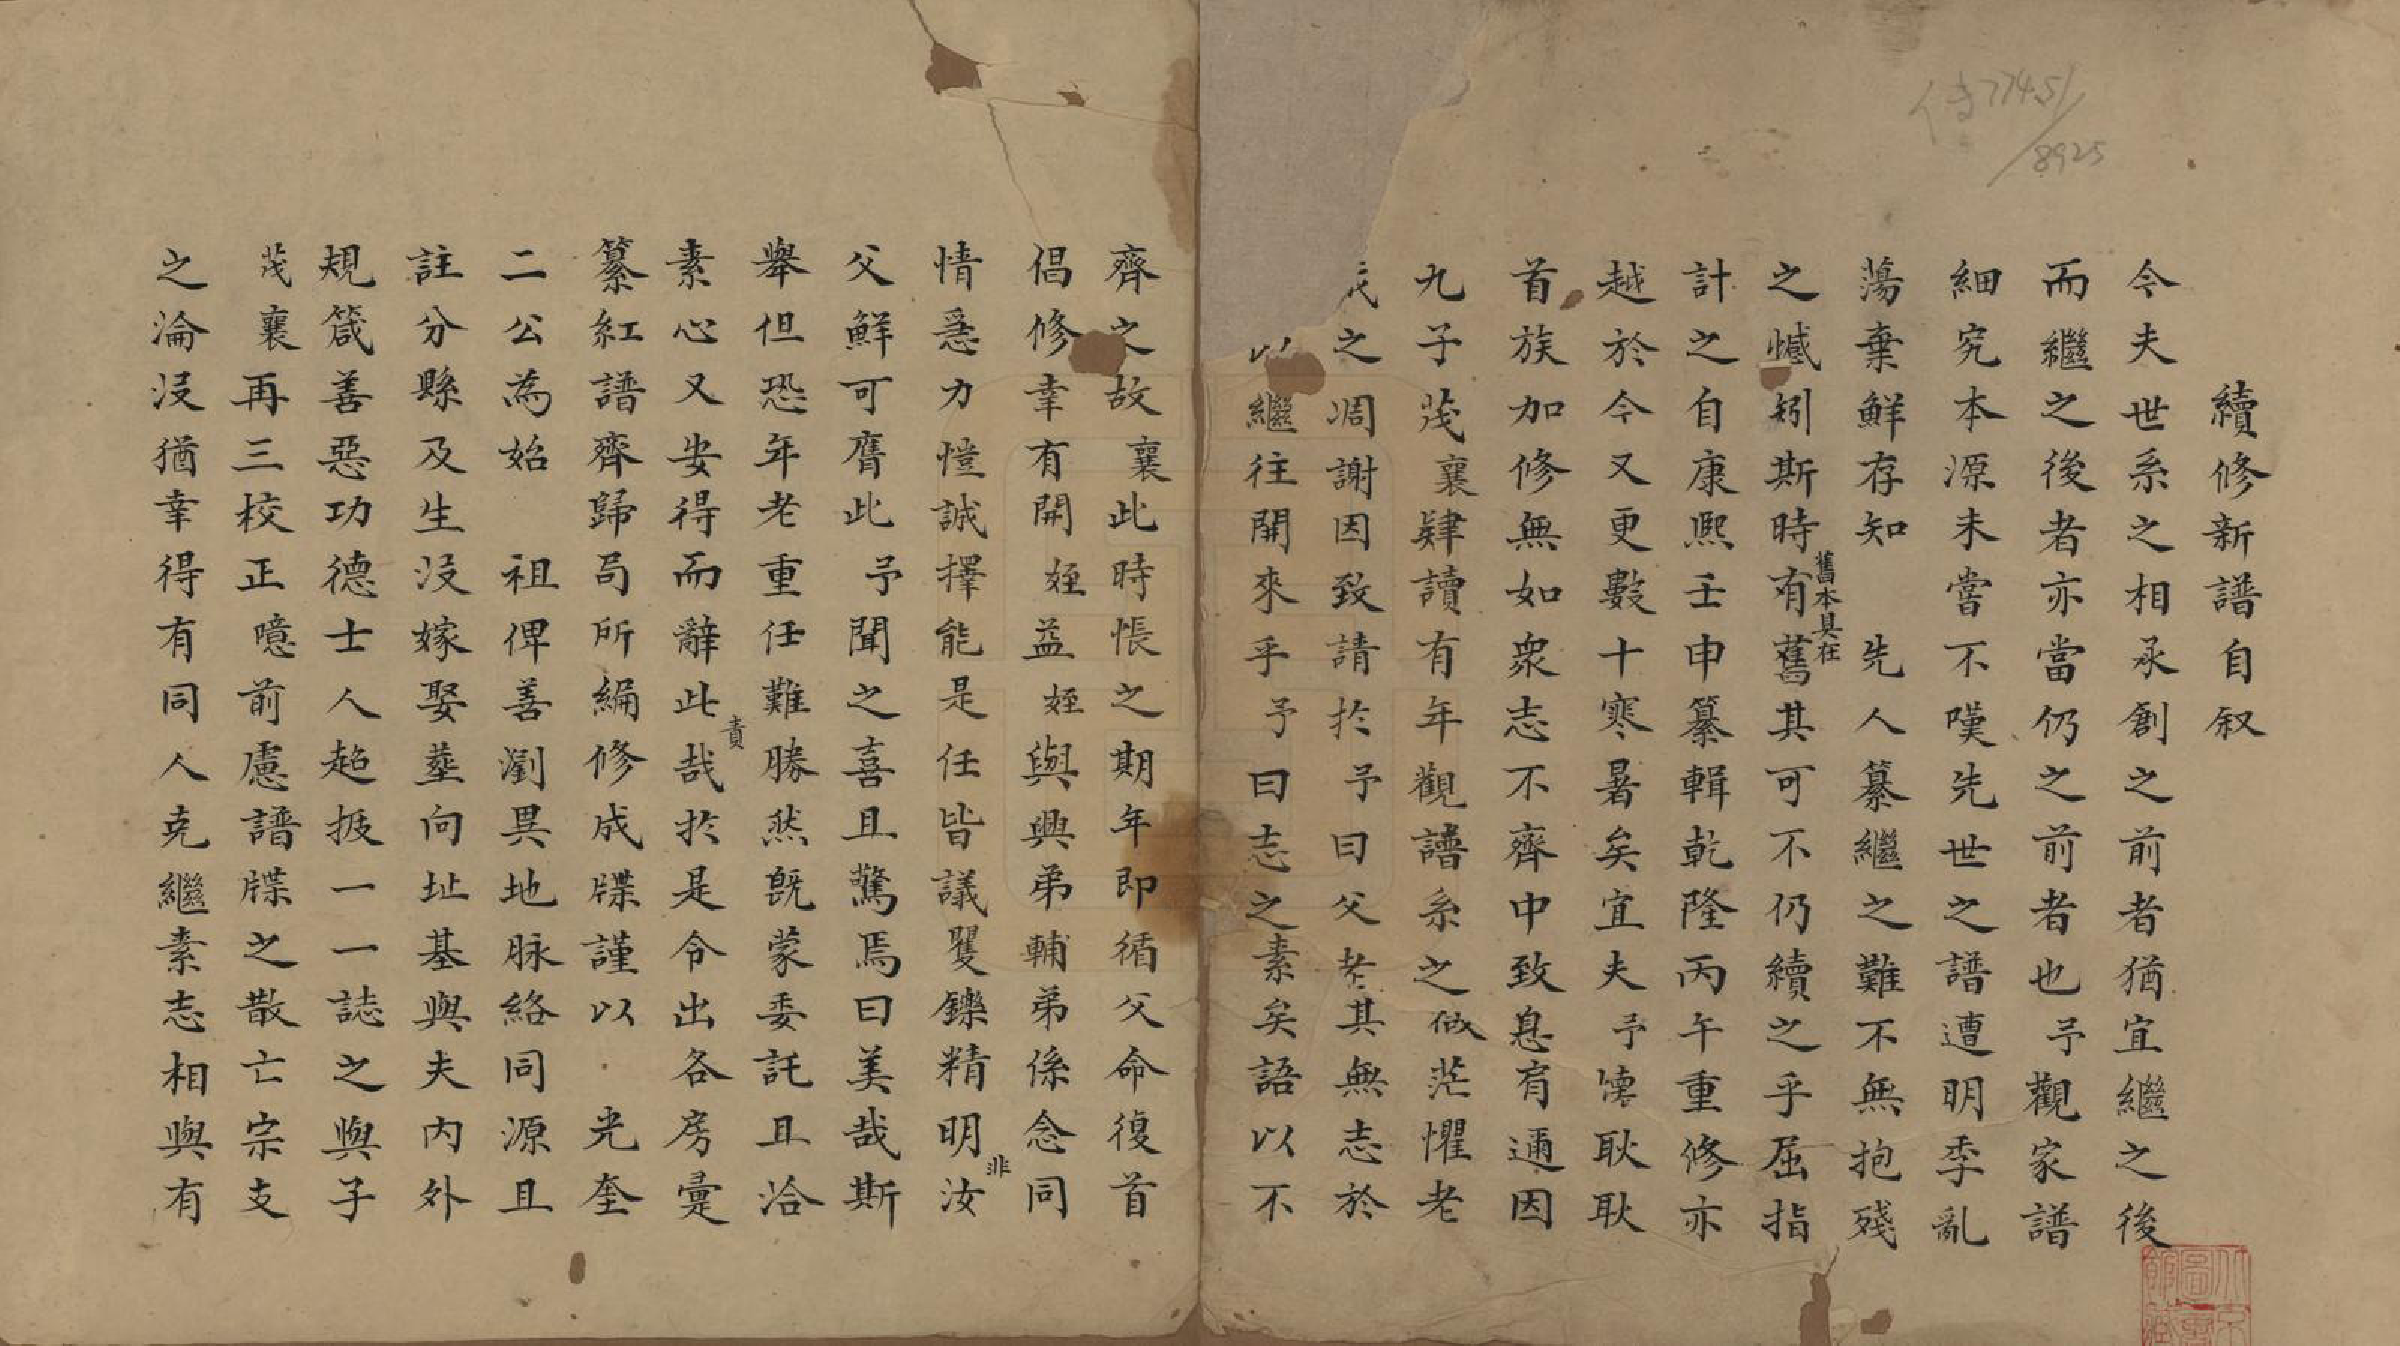 續修新譜自叙
今夫世系之相承創之前者猶宜繼之後
而繼之後者亦當仍之前者也予觀家譜
細究本源未嘗不嘆先世之譜遭明季亂
蕩棄鮮存知 先人纂繼之難不無抱殘
之憾矧斯時有舊其可不仍續之乎屈指
舊本具在
計之自康熙壬申纂輯乾隆丙午重修亦
越於今又更數十寒暑矣宜夫予懐耿耿
首族加修無如衆志不齊中致息肩邇因
九子茂襄肄讀有年觀譜系之微茫懼老
之凋謝因致請於予曰父老其無志於
以繼往開來乎予曰志之素矣語以不
齊之故襄此時悵之期年即循父命復首
倡修幸有開姪益姪與興弟輔弟係念同
情急力愷誠擇能是任皆議矍鑠精明汝
非
父鮮可膺此予聞之喜且驚焉曰美哉斯
舉但恐年老重任難勝然旣蒙委託且洽
素心又安得而辭此哉於是令出各房彙
責
纂紅譜齊歸局所編修成牒謹以 光奎
二公為始 祖俾善瀏異地脉絡同源且
註分縣及生沒嫁娶塟向址基與夫內外
規箴善惡功德士人超拔一一誌之與子
茂襄再三校正噫前慮譜牒之散亡宗支
之淪沒猶幸得有同人克繼素志相與有
侍77451/8925